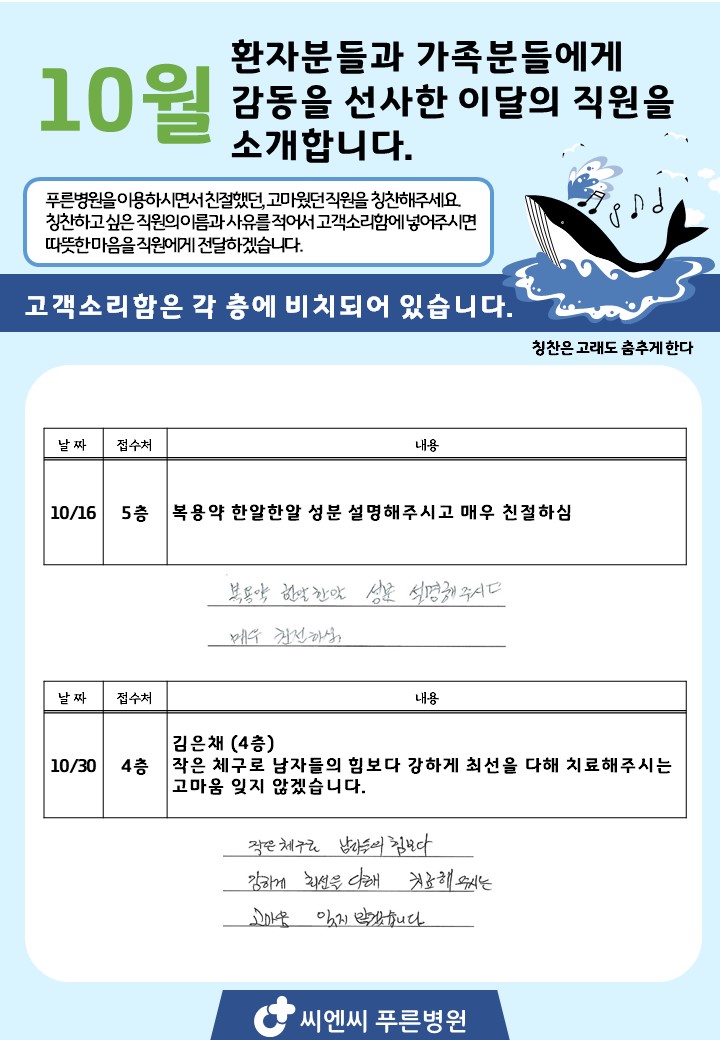 10월
환자분들과 가족분들에게
감동을 선사한 이달의 직원을
소개합니다.
푸른병원을 이용하시면서 친절했던, 고마웠던 직원을 칭찬해주세요.
칭찬하고 싶은 직원의 이름과 사유를 적어서 고객소리함에 넣어주시면
따뜻한 마음을 직원에게 전달하겠습니다.
고객소리함은 각 층에 비치되어 있습니다.
칭찬은 고래도 춤추게 한다
날 짜 접수처 내용
10/16 5층 복용약 한알한알 성분 설명해주시고 매우 친절하심
복용약 한알한알 성분 설명해주시고
매우 친절하심
날 짜 접수처 내용
10/30 4층
김은채 (4층)
작은 체구로 남자들의 힘보다 강하게 최선을 다해 치료해주시는
고마움 잊지 않겠습니다.
작은 체구로 남자들의 힘보다
강하게 최선을 다해 치료해주시는
고마움 잊지 않겠습니다
씨엔씨 푸른병원